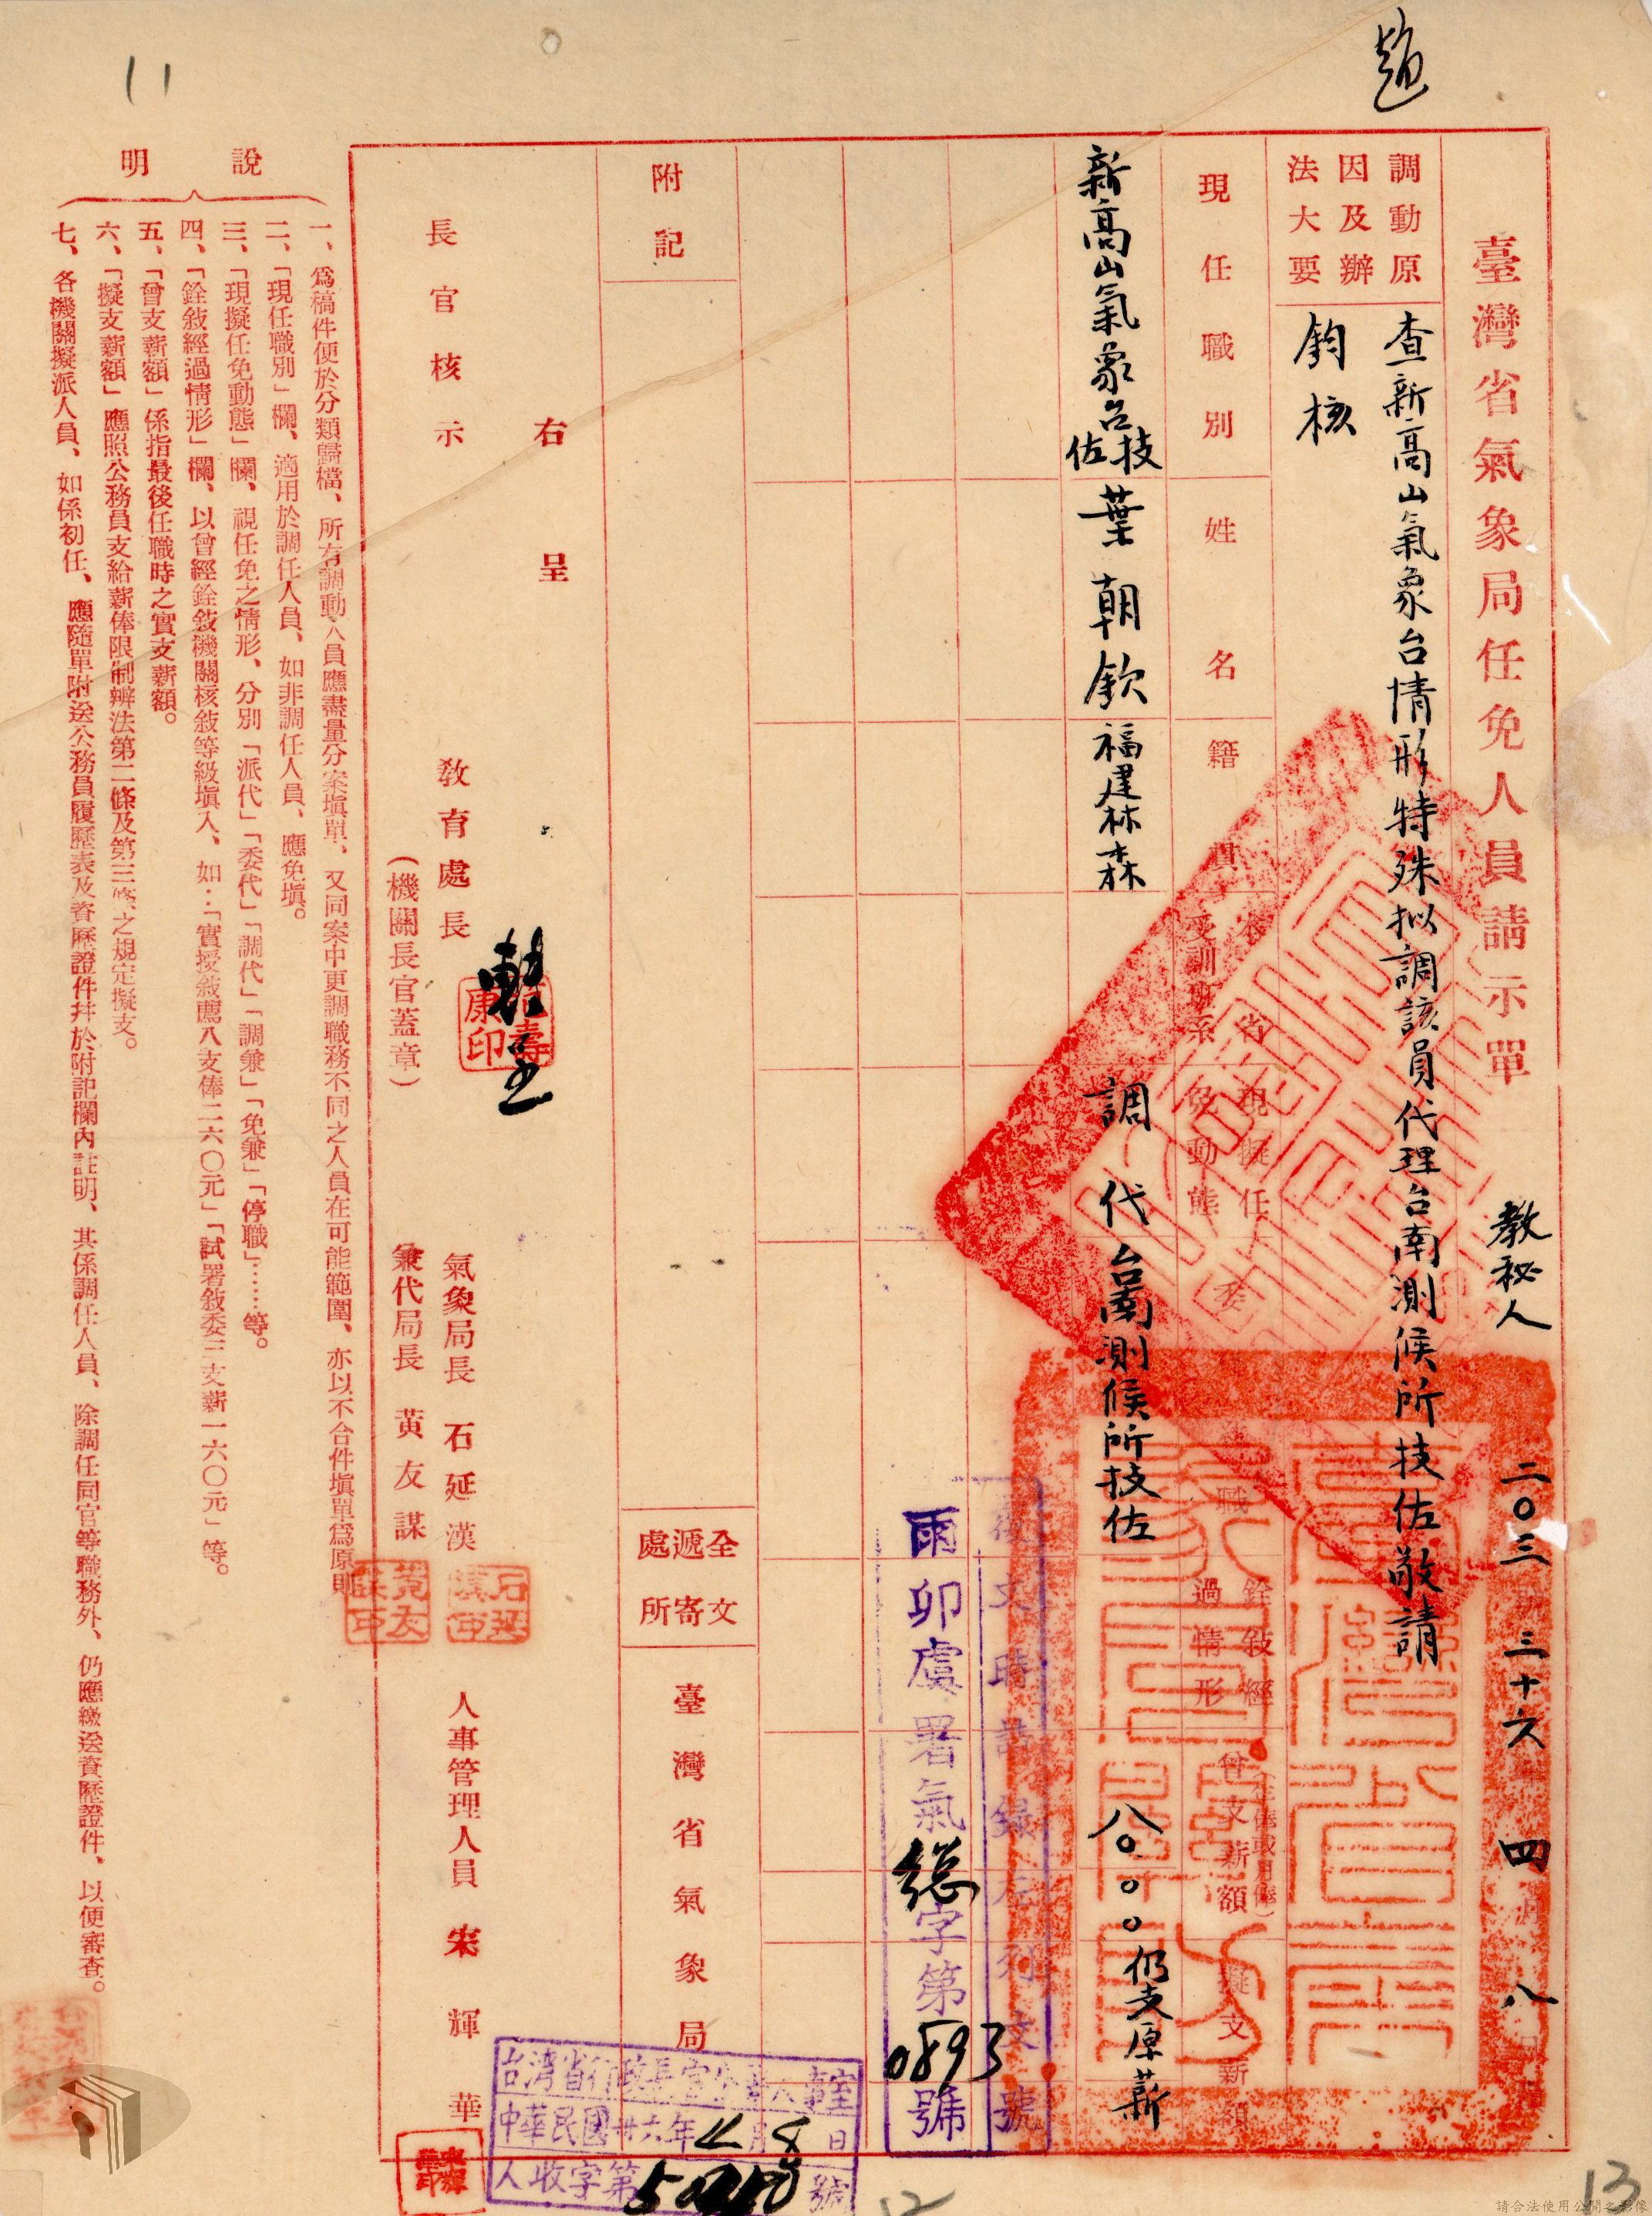 趙
11
臺灣省氣象局任免人員請示單
教秘人
二〇三
三十六
四
八
調動原因及辦法大要
查新高山氣象台情形特殊拟調該員代理台南測候所技佐敬請
鈞核
現任職別
姓名
籍貫
現擬任免動態
銓敍經過情形
曾支薪額
擬支薪額
新高山氣象台技佐
葉朝欽
福建林森
調代
台南測候所技佐
八〇.〇〇
仍支原薪
復文時請錄左列文號
雨卯虞署氣總字第0893號
附記
全文遞寄處所
臺灣省氣象局
右呈
長官核示
教育處長
(機關長官蓋章)
范壽康印
氣象局長 石延漢
兼代局長 黃友謀
人事管理人員 宋輝華
台湾省行政長官公署人事室
中華民國卅六年4月8日
人收字第
號
說明
一、爲稿件便於分類歸檔、所有調動人員應盡量分案塡單、又同案中更調職務不同之人員在可能範圍、亦以不合件塡單爲原則
二、「現任職別」欄、適用於調任人員、如非調任人員、應免塡。
三、「現擬任免動態」欄、視任免之情形、分別「派代」「委代」「調代」「調兼」「免兼」「停職」……等。
四、「銓敍經過情形」欄、以曾經銓敍機關核敍等級塡入、如：「實授敍薦八支俸二六〇元」「試署敍委三支薪一六〇元」等。
五、「曾支薪額」係指最後任職時之實支薪額。
六、「擬支薪額」應照公務員支給薪俸限制辦法第二條及第三條之規定擬支。
七、各機關擬派人員、如係初任、應隨單附送公務員履歷表及資歷證件幷於附記欄內註明、其係調任人員、除調任同官等職務外、仍應繳送資歷證件、以便審查。
12
13
請合法使用公開之影像